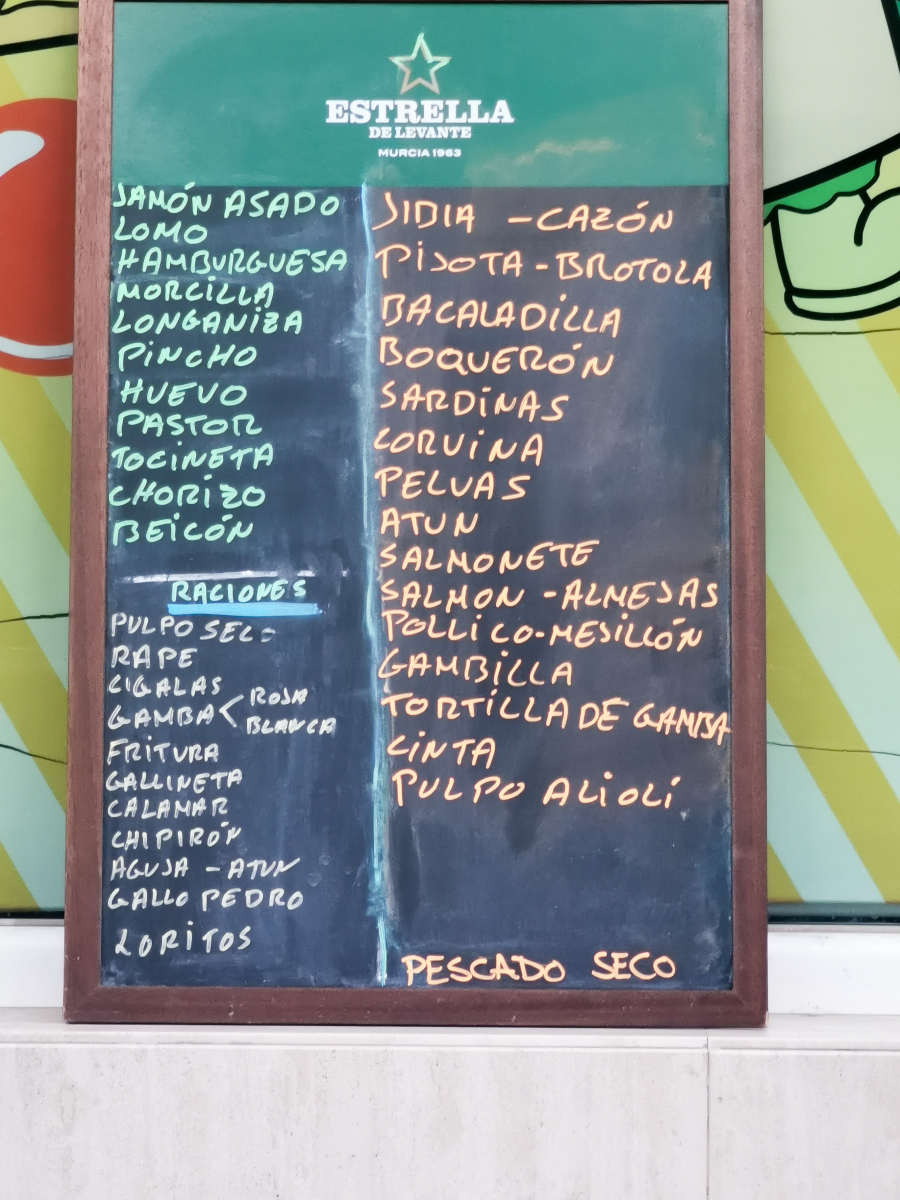 ESTRELLA
DE LEVANTE
MURCIA 1963
JAMÓN ASADO
LOMO
HAMBURGUESA
MORCILLA
LONGANIZA
PINCHO
HUEVO
PASTOR
TOCINETA
CHORIZO
BEICÓN
RACIONES
PULPO SECO
RAPE
CIGALAS
GAMBA < ROJA
BLANCA
FRITURA
GALLINETA
CALAMAR
CHIPIRÓN
AGUJA - ATUN
GALLO PEDRO
LORITOS
JIBIA - CAZÓN
PIJOTA - BROTOLA
BACALADILLA
BOQUERÓN
SARDINAS
CORVINA
PELVAS
ATUN
SALMONETE
SALMON - ALMEJAS
POLLICO - MESILLÓN
GAMBILLA
TORTILLA DE GAMBA
CINTA
PULPO ALIOLÍ
PESCADO SECO